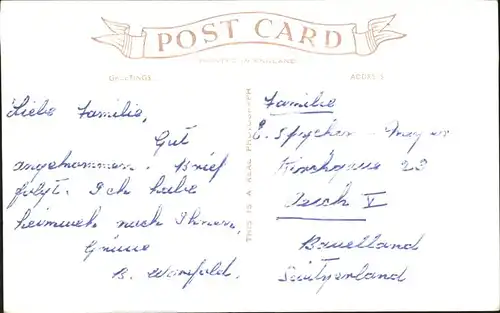 POST CARD
PRINTED IN ENGLAND
GREETINGS
ADDRESS
THIS IS A REAL PHOTOGRAPH
Liebe Familie,
Gut
angekommen. Brief
folgt. Ich habe
heimweh nach Ihnen,
Grüsse
B.
Familie
E. Spycher - Meyer
Kirchgasse 23
Aesch
Baselland
Switzerland